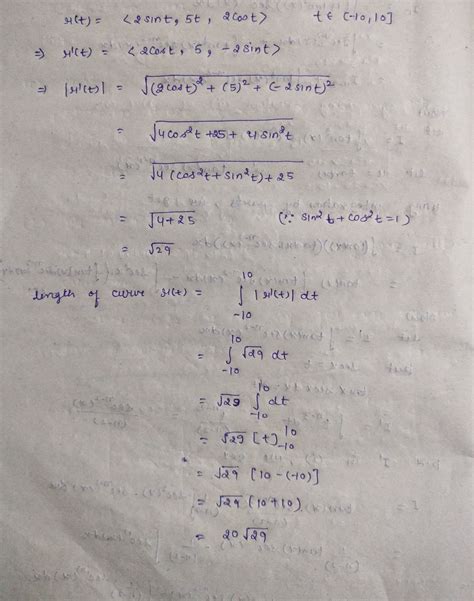 r(t) = ⟨2sint, 5t, 2cost⟩ t ∈ [-10,10]
⇒ r'(t) = ⟨2cost, 5, -2sint⟩
⇒ |r'(t)| = √((2cost)² + (5)² + (-2sint)²)
= √(4cos²t +25+ 4sin²t)
= √(4(cos²t+sin²t)+25)
= √(4+25) (∵ sin²t+cos²t=1)
= √29
length of curve r(t) = ∫₋₁₀¹⁰ |r'(t)| dt
= ∫₋₁₀¹⁰ √29 dt
= √29 ∫₋₁₀¹⁰ dt
= √29 [t]₋₁₀¹⁰
= √29 [10-(-10)]
= √29 (10+10)
= 20√29